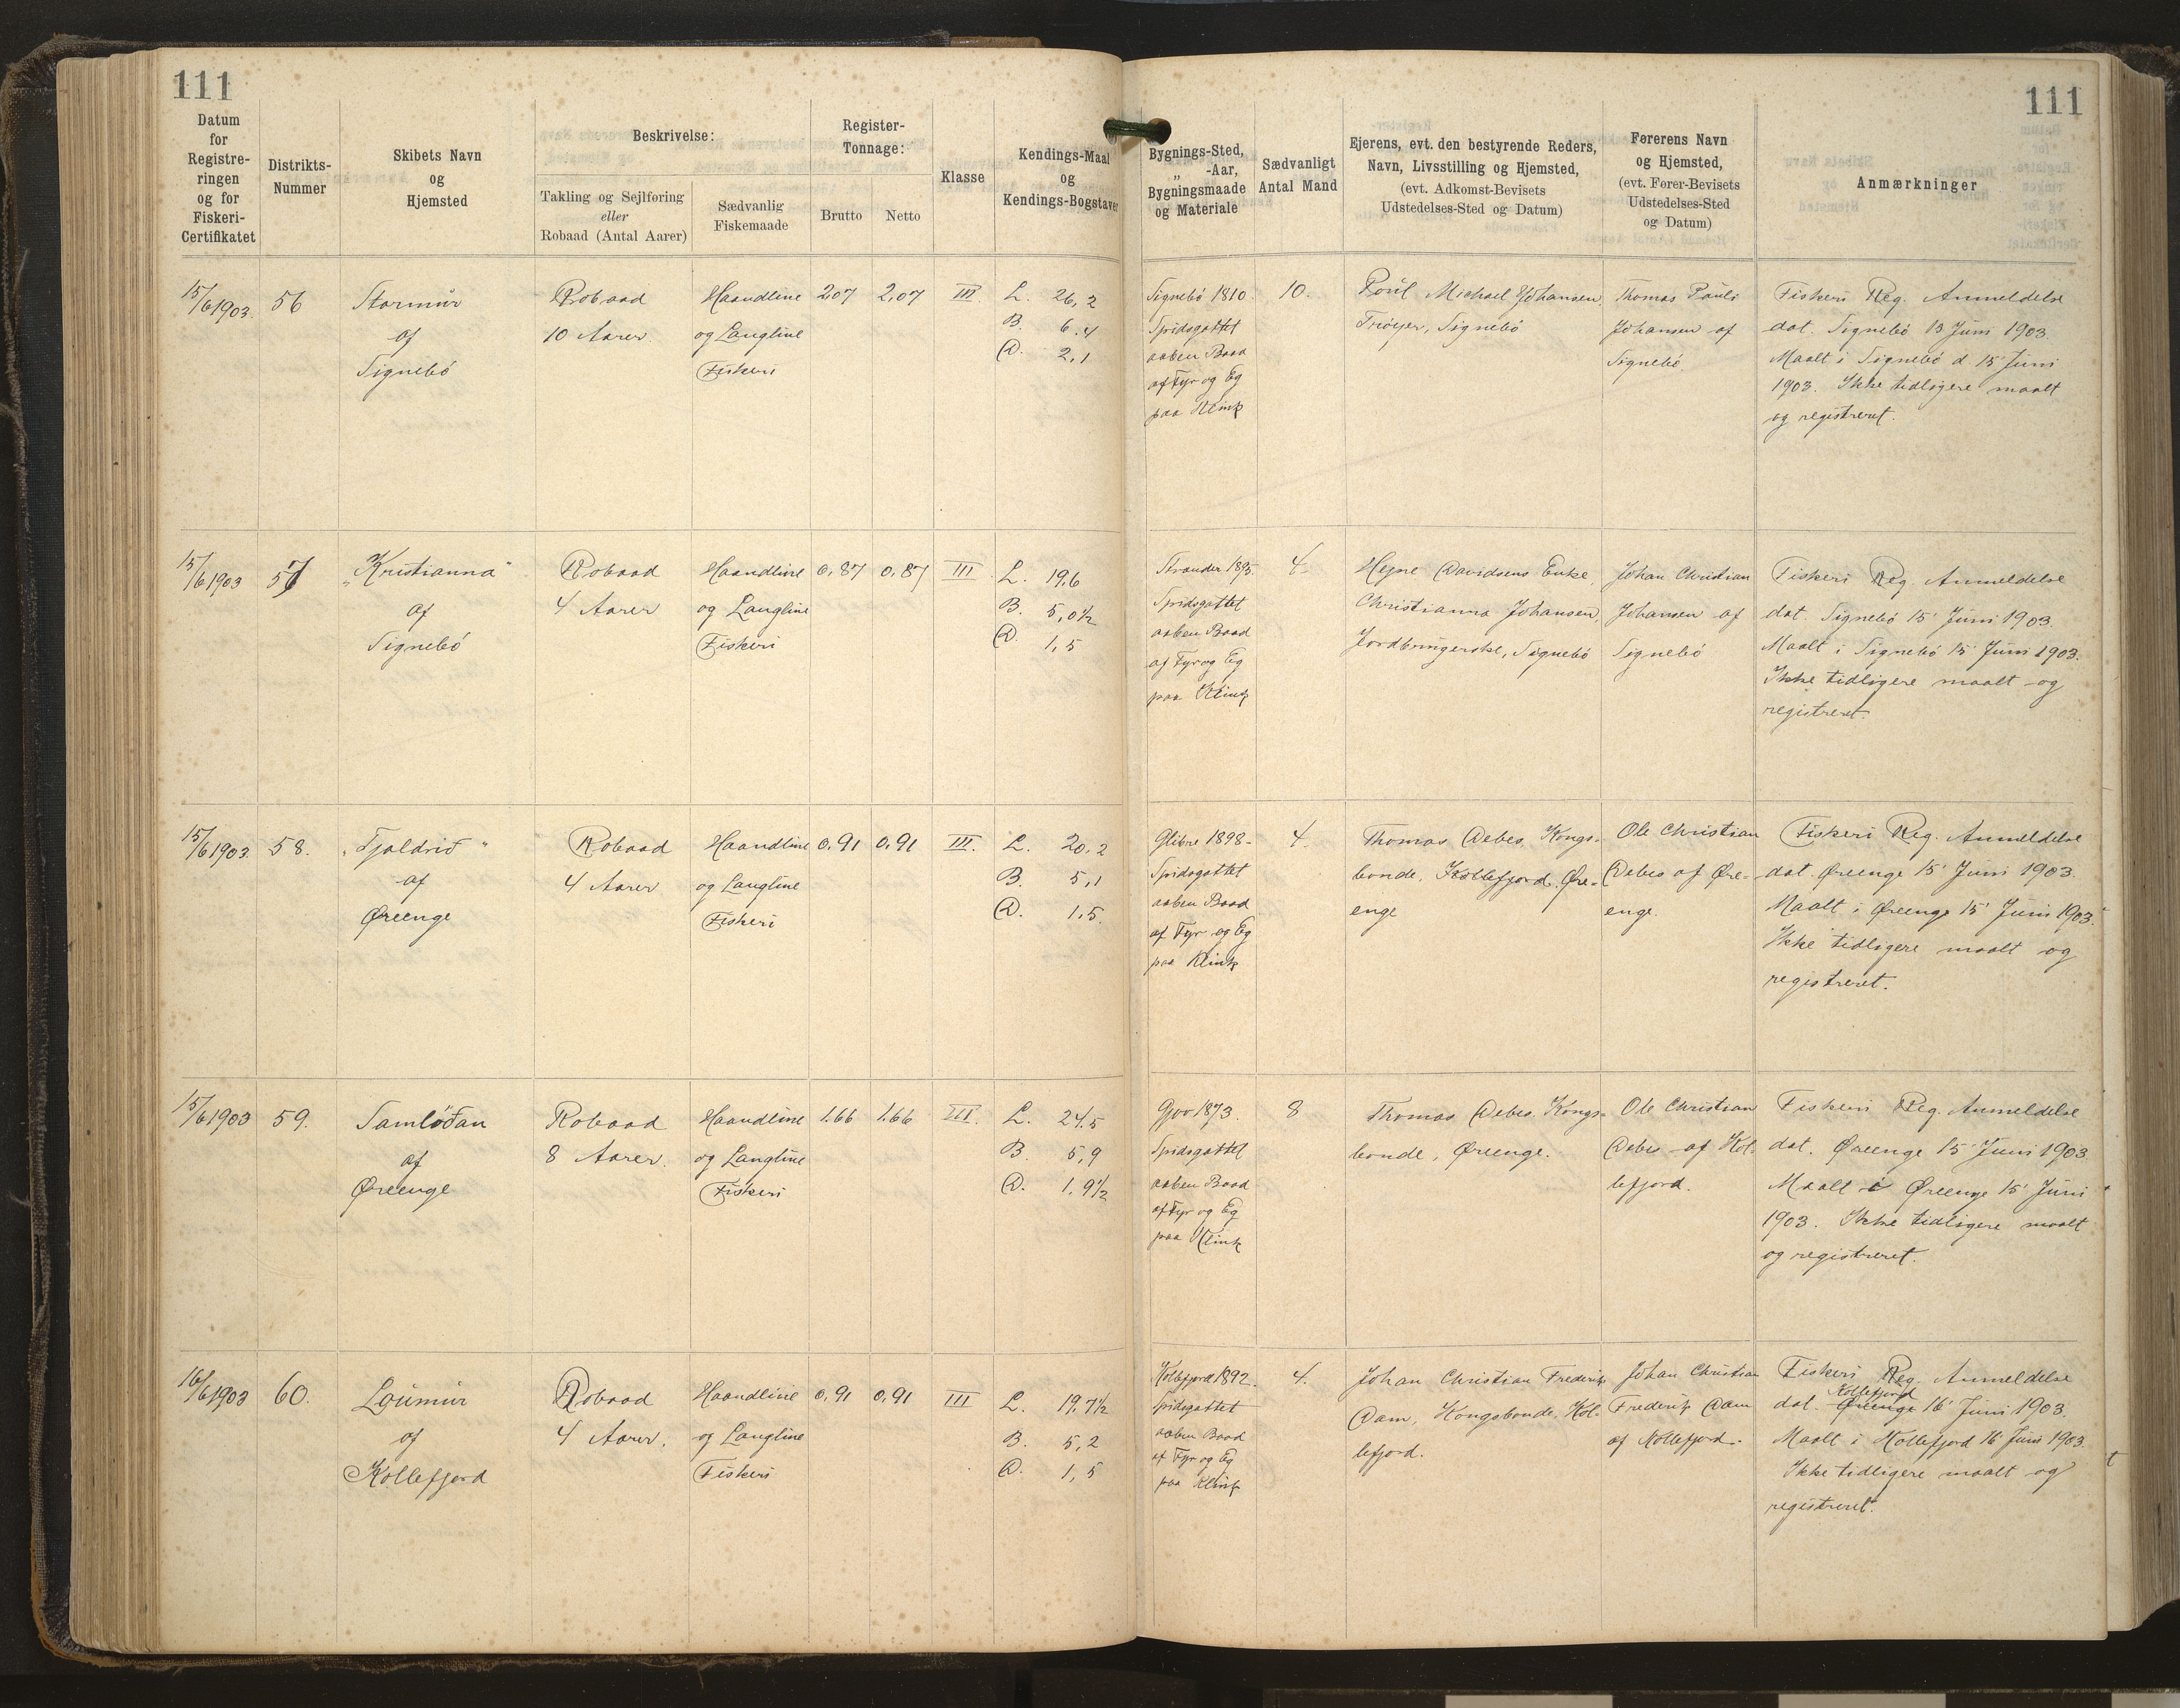 111
111
Datum
for
Registre-
ringen
og for
Fiskeri-
Certifikatet
Distrikts-
Nummer
Skibets Navn
og
Hjemsted
Beskrivelse:
Takling og Sejlføring
eller
Robaad (Antal Aarer)
Sædvanlig
Fiskemaade
Register-
Tonnage:
Brutto
Netto
Klasse
Kendings-Maal
og
Kendings-Bogstaver
Bygnings-Sted,
„ -Aar,
Bygningsmaade
og Materiale
Sædvanligt
Antal Mand
Ejerens, evt. den bestyrende Reders,
Navn, Livsstilling og Hjemsted,
(evt. Adkomst-Bevisets
Udstedelses-Sted og Datum)
Førerens Navn
og Hjemsted,
(evt. Fører-Bevisets
Udstedelses-Sted
og Datum)
Anmærkninger
15/6 1903.
56
Stormúr
af
Signebö
Robaad
10 Aarer
Haandline
og Langline
Fiskeri
2,07
2,07
III
L. 26,2
B. 6.4
D. 2,1
Signebö 1810.
Spidsgattet
aaben Baad
af Fyr og Eg
paa Klink
10.
Poúl Michael Johansen,
Trøyer, Signebö
Thomas Pauli
Johansen af
Signebö.
Fiskeri Reg. Anmeldelse
dat. Signebö 13 Juni 1903.
Maalt i Signebö d 15' Juni
1903. Ikke tidligere maalt
og registreret.
15/6 1903
57
„Kristianna"
af
Signebö
Robaad
4 Aarer
Haandline
og Langline
Fiskeri
0,87
0,87
III
L. 19,6
B. 5,0½
D. 1,5
Strander 1893.
Spidsgattet
aaben Baad
af Fyr og Eg
paa Klink
4
Hejne Davidsens Enke,
Christianna Johansen,
Jordbrugerske, Signebö
Johan Christian
Johansen af
Signebö
Fiskeri Reg Anmeldelse
dat. Signebö 15' Juni 1903.
Maalt i Signebö 15' Juni 1903.
Ikke tidligere maalt og
registreret.
15/6 1903.
58.
„Tjaldrið"
af
Øreenge
Robaad
4 Aarer
Haandline
og Langline
Fiskeri
0,91
0,91
III.
L. 20,2
B. 5,1
D. 1,5.
Glibre 1898.
Spidsgattet
aaben Baad
af Fyr og Eg
paa Klink
4
Thomas Debes, Kongs-
bonde, Kollefjord, Øre-
enge
Ole Christian
Debes af Øre-
enge.
Fiskeri Reg. Anmeldelse
dat. Øreenge 15' Juni 1903.
Maalt i Øreenge 15' Juni 1903.
Ikke tidligere maalt og
registreret.
15/6 1903
59.
Samlöðan
af
Øreenge
Robaad
8 Aarer.
Haandline
og Langline
Fiskeri
1.66
1.66
III.
L. 24.5
B. 5,9
D. 1,9½
Gjov 1873.
Spidsgattet
aaben Baad
af Fyr og Eg
paa Klink
8
Thomas Debes, Kongs-
bonde, Øreenge.
Ole Christian
Debes af Kol-
lefjord.
Fiskeri Reg. Anmeldelse
dat. Øreenge 15' Juni 1903.
Maalt i Øreenge 15' Juni
1903. Ikke tidligere maalt
og registreret.
16/6 1903
60.
Loúmúr
af
Kollefjord
Robaad
4 Aarer.
Haandline
og Langline
Fiskeri
0,91
0,91
III
L. 19,7½
B. 5,2
D. 1,5
Kollefjord 1892.
Spidsgattet
aaben Baad
af Fyr og Eg
paa Klink
4.
Johan Christian Frederik
Dam, Kongsbonde, Kol-
lefjord.
Johan Christian
Frederik Dam
af Kollefjord.
Fiskeri Reg. Anmeldelse
Kollefjord
dat. Øreenge 16' Juni 1903.
Maalt i Kollefjord 16' Juni 1903.
Ikke tidligere maalt og
registreret.